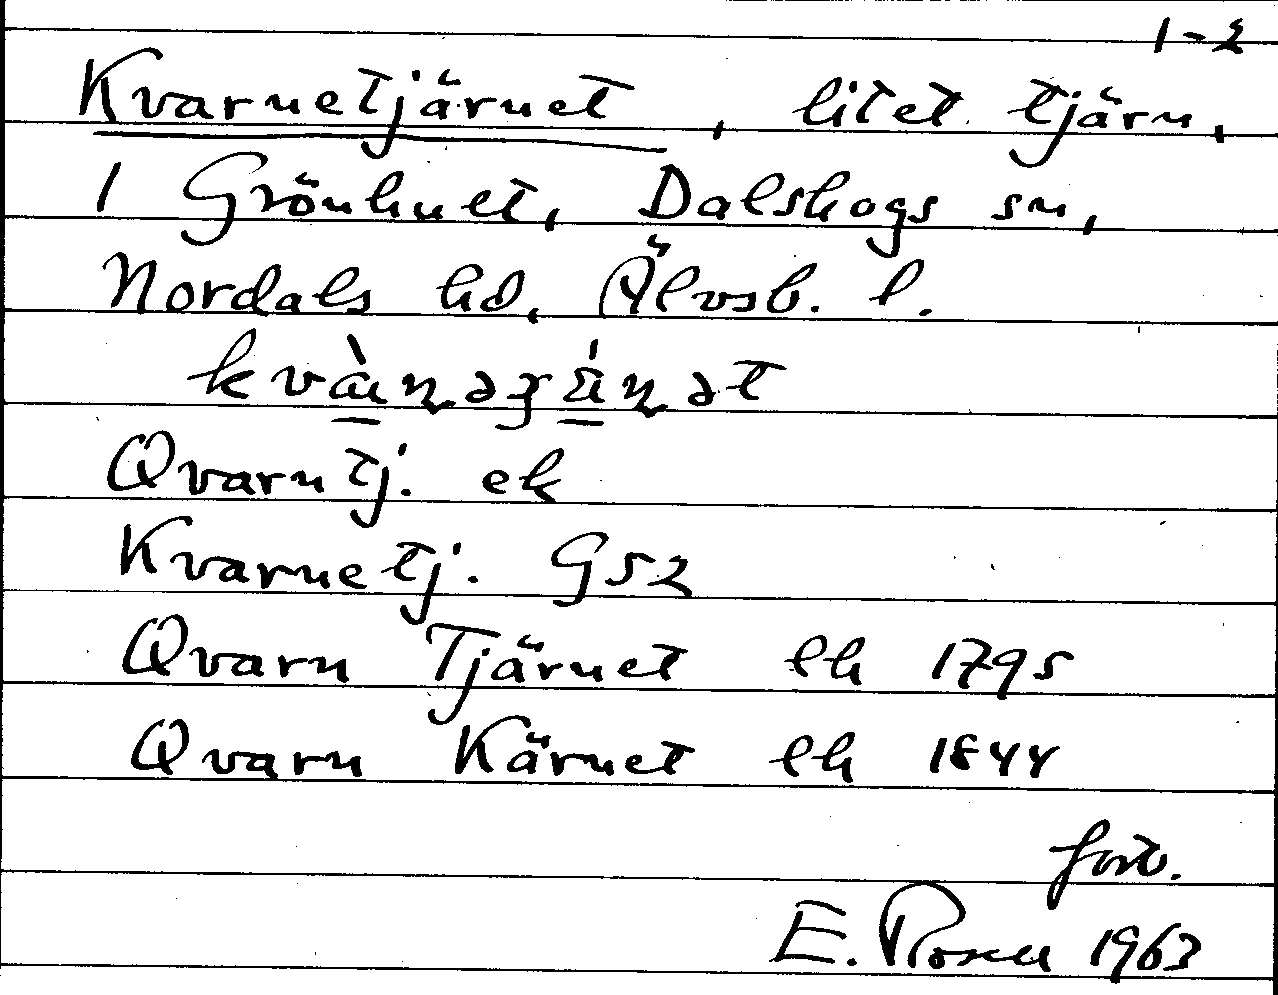 1-2
Kvarnetjärnet, litet tjärn,
i Grönhult, Dalskogs sn,
Nordals hd, Älvsb. l.
Qvarntj. ek
Kvarnetj. G52
Qvarn Tjärnet lh 1795
Qvarn Kärnet lh 1844
fort.
E. Rosell 1963